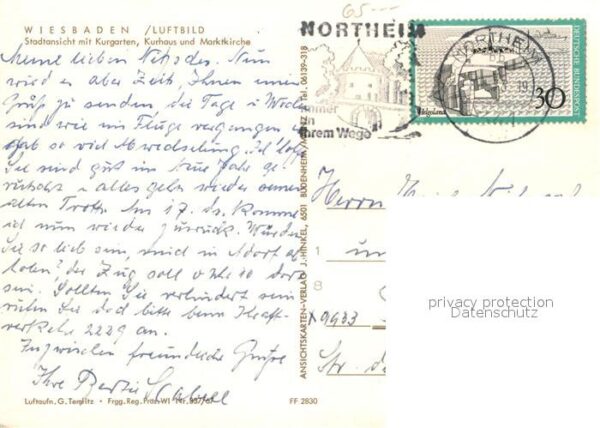 WIESBADEN / LUFTBILD
Stadtansicht mit Kurgarten, Kurhaus und Marktkirche
Meine lieben
Nun
wird es aber Zeit, Ihnen einen
Gruß zu senden, die Tage u. Wochen
sind wie im Fluge vergangen es
gab so viel Abwechslung. Ich hoffe
Sie sind gut ins Neue Jahr ge-
rutscht u. alles geht wieder seinen
alten Trott. Am 17. ds. komme
ich nun wieder zurück. Würden
Sie so lieb sein, mich in Adorf ab-
holen? der Zug soll
dort
sein. Sollten Sie verhindert sein
rufen Sie doch bitte beim Kraft-
verkehr 2229 an.
Inzwischen freundliche Grüße
Ihre
Luftaufn. G. Tenglitz • Frgg. Reg. Präs. WI Nr. 857/67
FF 2830
ANSICHTSKARTEN-VERLAG J. HINKEL, 6501 BUDENHEIM/MAINZ, Tel. 06139-318
65.--
NORTHEIM
immer
an
Ihrem Wege
NORTHEIM
Helgoland
30
DEUTSCHE BUNDESPOST
Herrn
un
1
8
X 9933
Str. de
privacy protection
Datenschutz